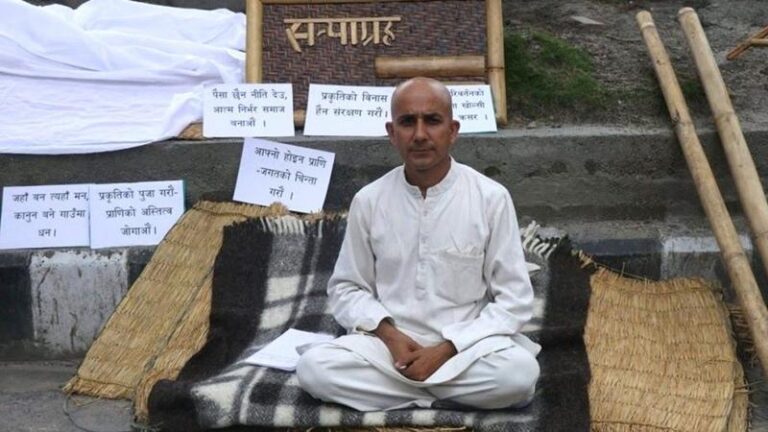 सत्याग्रह
पैसा छैन नीति देउ,
आत्म निर्भर समाज
बनाऔं ।
प्रकृतिको विनास
हैन संरक्षण गरौं ।
कसर ।
आफ्नो होइन प्राणि
-जगतको चिन्ता
गरौं ।
जहाँ बन त्यहाँ मन,
कानुन बने गाउँमा
धन ।
प्रकृतिको पुजा गरौं-
प्राणिको अस्तित्व
जोगाऔं ।